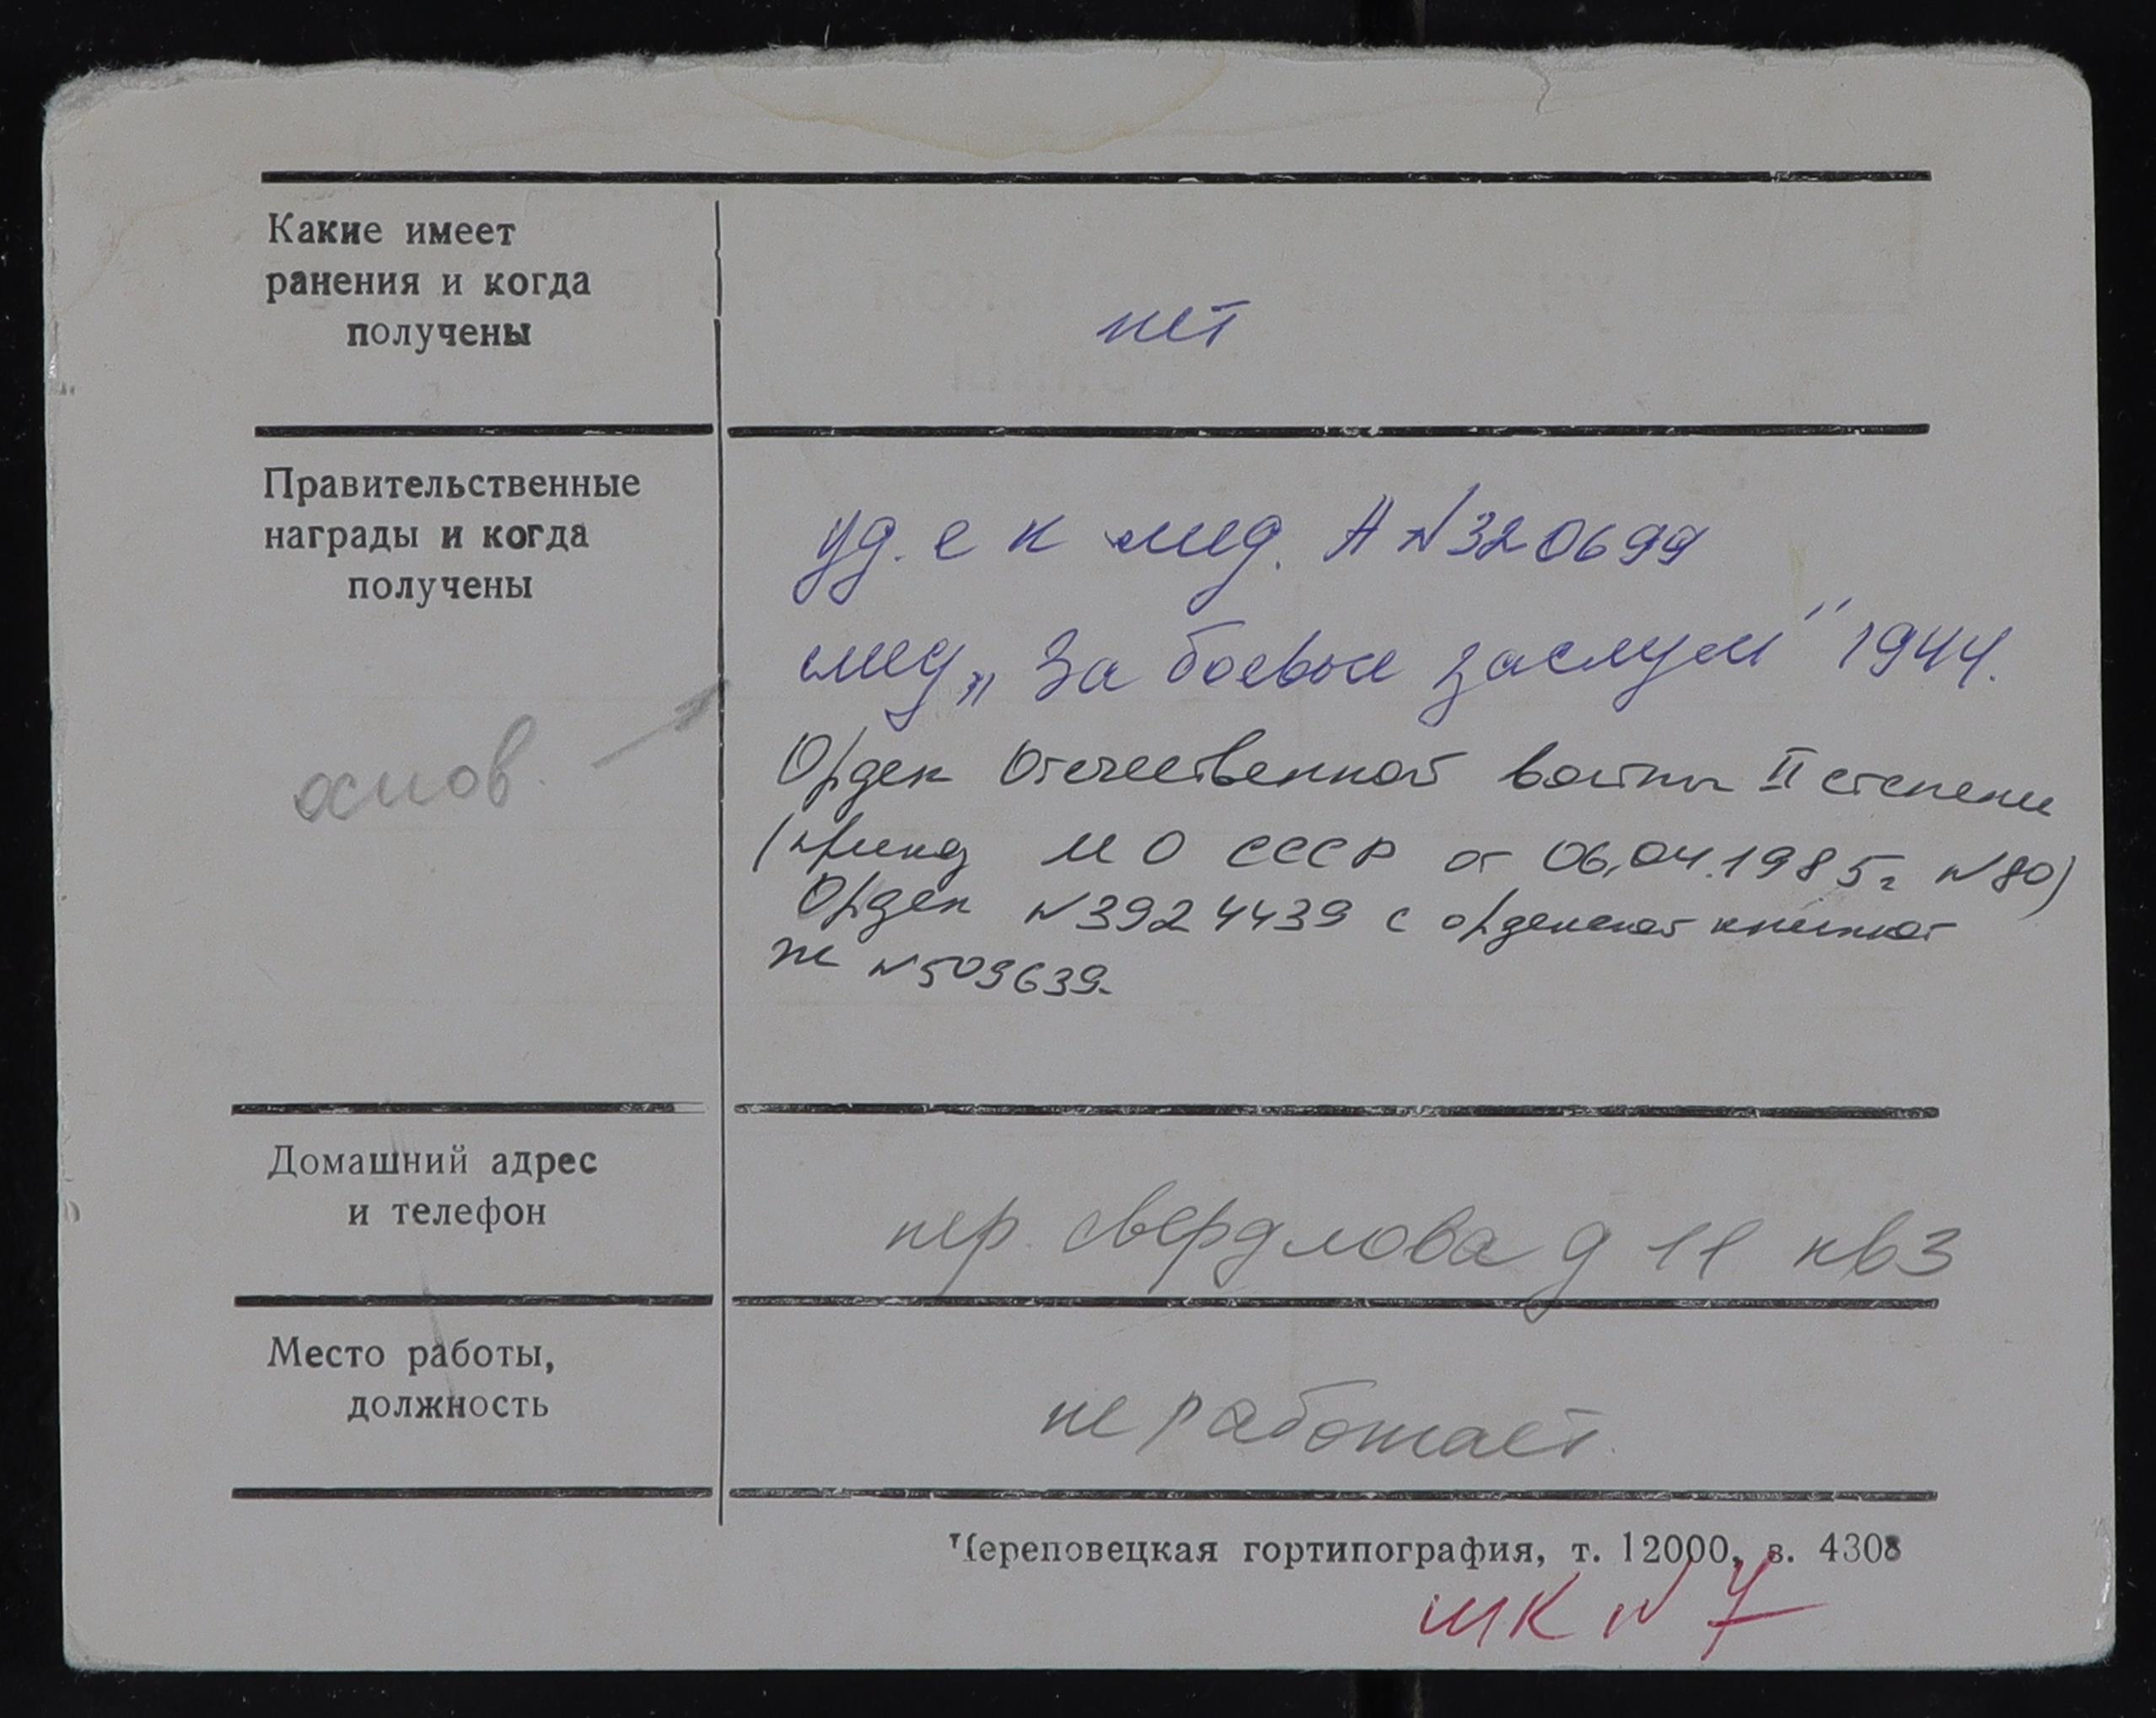 Какие имеет
ранения и когда
получены
нет
Правительственные
награды и когда
получены
уд. е к мед. А №320699
мед „За боевые заслуги" 1944.
основ. —
Орден Отечественной войны II степени
(приказ МО СССР от 06.04.1985г. №80)
Орден №3924439 с орденской книжкой
Ж №509639.
Домашний адрес
и телефон
пер. Свердлова д 11 кв 3
Место работы,
должность
не работает.
Череповецкая гортипография, т. 12000, з. 4308
ШК № 7